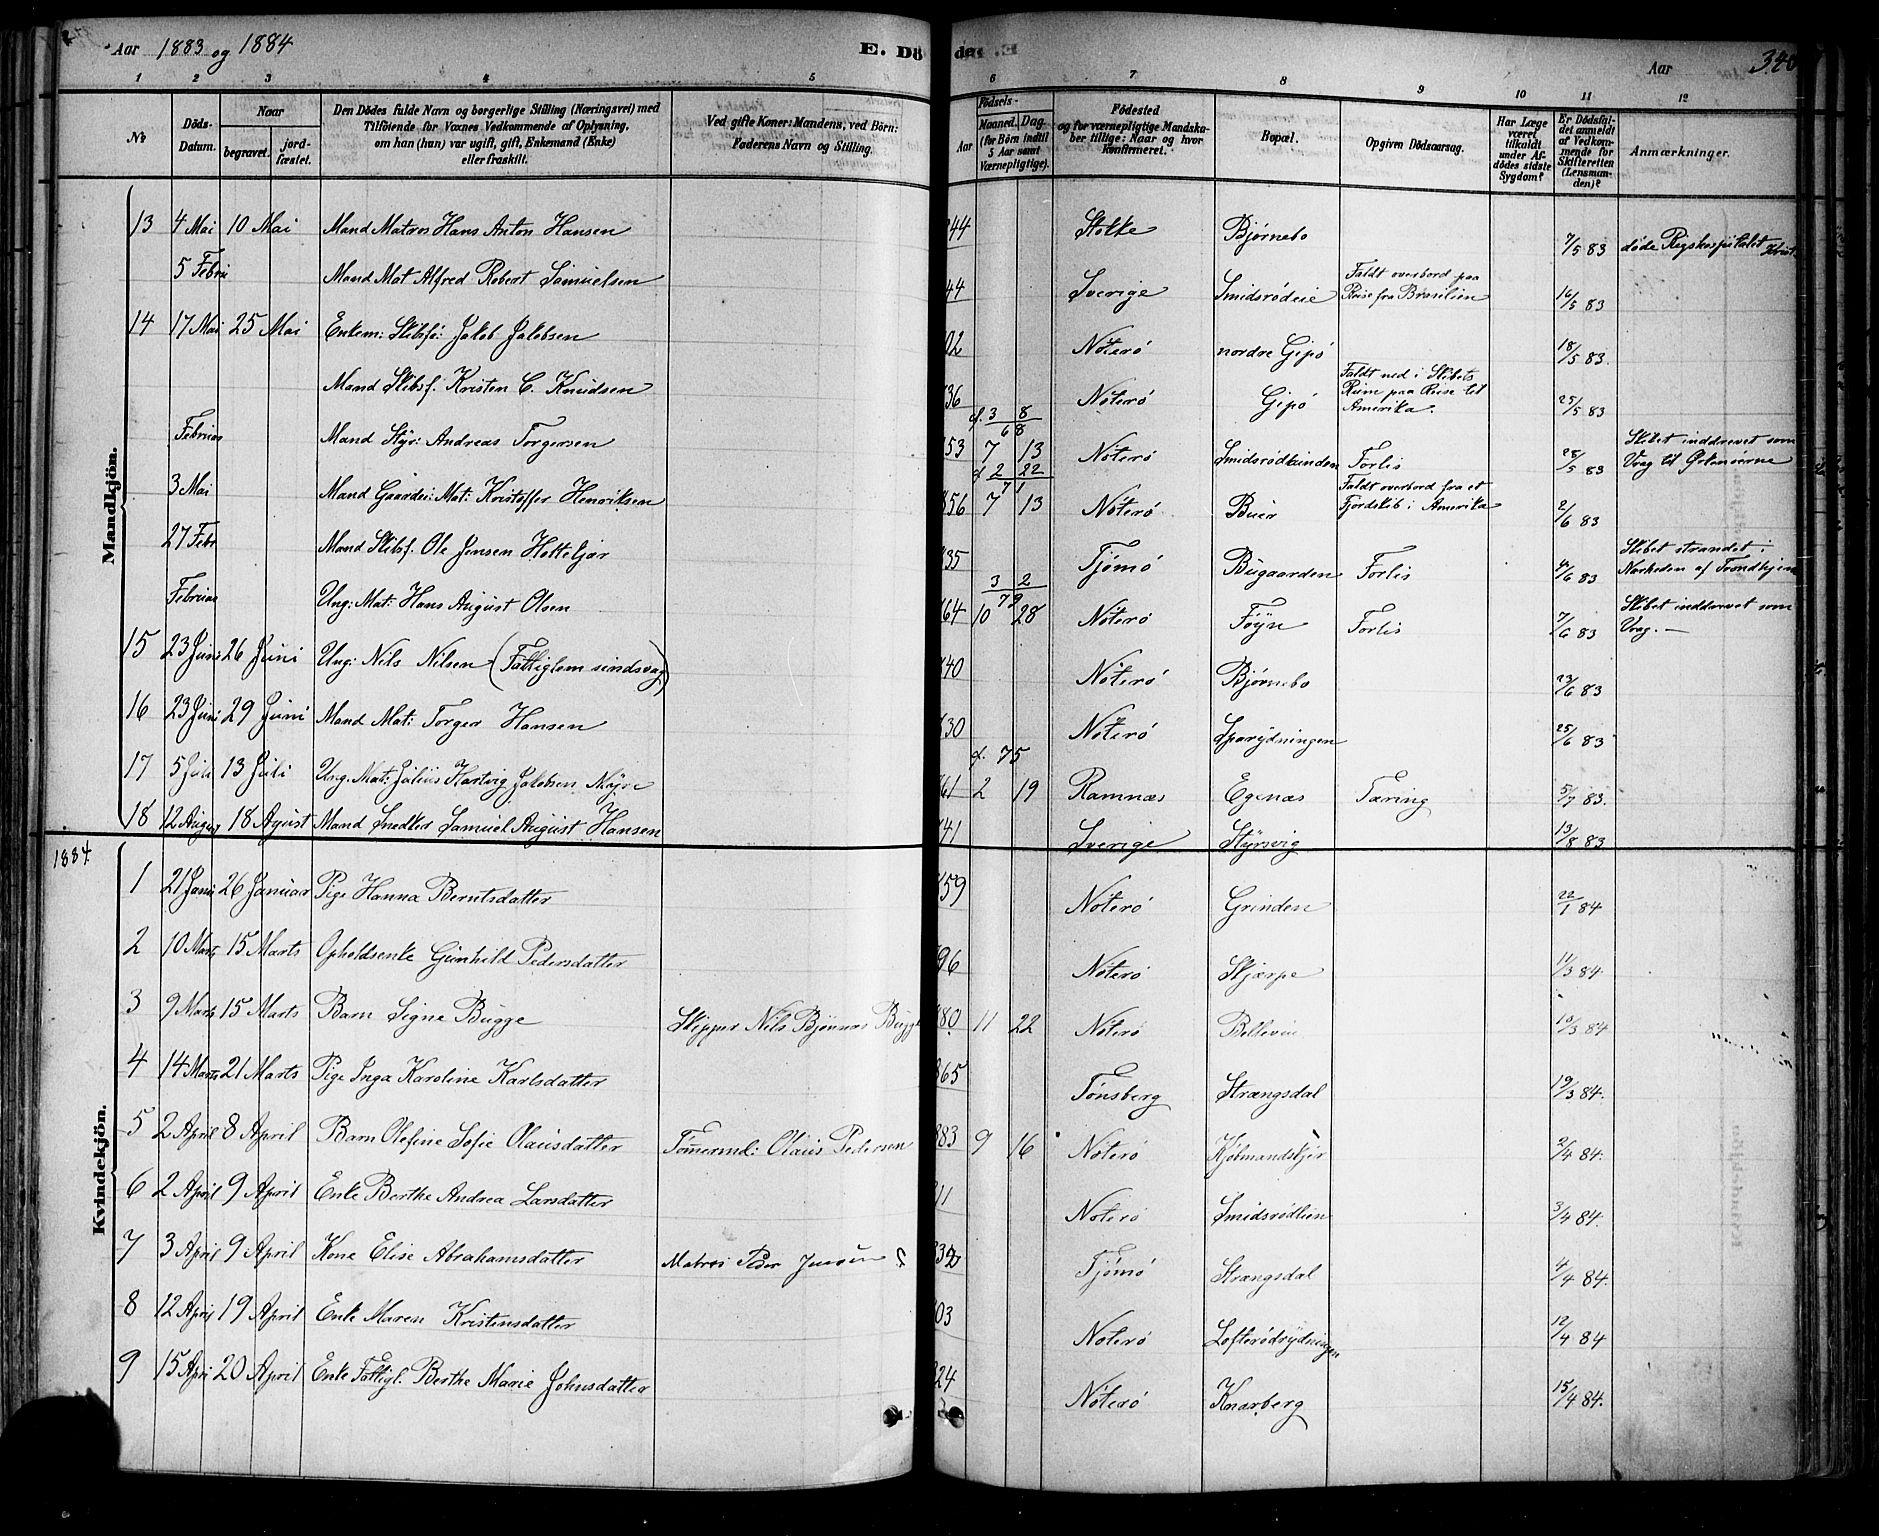 Aar 1883 og 1884 E. Dö de. Aar 340
1 2 3 4 5 6 7 8 9 10 11 12
No
Döds-Datum.
Naar
begravet. jord-fæstet.
Den Dödes fulde Navn og borgerlige Stilling (Næringsvei) med
Tilföiende for Voxnes Vedkommende af Oplysning,
om han (hun) var ugift, gift, Enkemand (Enke)
eller fraskilt.
Ved gifte Koner: Mandens, ved Börn:
Faderens Navn og Stilling.
Födsels-
Aar Maaned. Dag
(for Börn indtil
5 Aar samt
Værnepligtige).
Födested
og for værnepligtige Mandska-
ber tillige: Naar og hvor
konfirmeret.
Bopæl.
Opgiven Dödsaarsag.
Har Læge
været
tilkaldt
under Af-
dödes sidste
Sygdom?
Er Dödsfal-
det anmeldt
af Vedkom-
mende for
Skifteretten
(Lensman-
den)?
Anmærkninger.
Mandkjön.
13 4 Mai 10 Mai Mand Matros Hans Anton Hansen 44 Stokke Bjørnebo 7/5 83 døde Rigshospitalet Krist.
5 Febru Mand Mat Alfred Robert Samuelsen 44 Sverige Smidsrødeie Faldt overbord paa Reise fra Brasilien 16/5 83
14 17 Mai 25 Mai Enkem: Skibsfø: Jakob Jakobsen 02 Nøterø nordre Gipø 18/5 83.
Mand Skibsf. Kristen C. Knudsen 36 Nøterø Gipø Faldt ned i Skibets Reise paa Reise til Amerika. 25/5 83
d. 3 8 / 68
Februar Mand Styr: Andreas Torgersen 53 7 13 Nøterø Smidsrødkinden Forlis 28/5 83 Skibet inddrevet som Vrag til
d 2 22 / 71
3 Mai Mand Gaardei: Mat: Kristoffer Henriksen 56 7 13 Nøterø Buer Faldt overbord fra et Fjordskib i Amerika 2/6 83
27 Febr Mand Skibsf. Ole Jensen 35 Tjømø Bugaarden Forlis 4/6 83 Skibet strandet i Nærheden af Trondhjem
3 2 / 79
Februar Ung: Mat: Hans August Olsen 64 10 28 Nøterø Føyn Forlis 7/6 83 Skibet inddrevet som Vrag. —
15 23 Juni 26 Juni Ung: Nils Nilsen (Fattiglem sindsvag) 40 Nøterø Bjørnebo 23/6 83
16 23 Juni 29 Juni Mand Mat: Torger Hansen 30 Nøterø Sparydningen 25/6 83
d. 75
17 5 Juli 13 Juli Ung. Mat: Julius Hartvig Jakobsen Myre 61 2 19 Ramnæs Egenæs Tæring 5/7 83.
18 12 August 18 August Mand Snedker Samuel August Hansen 41 Sverige Styrsvig 13/8 83
1884
Kvindekjön.
1 21 Janu 26 Januar Pige Hanna Berntsdatter 59 Nøterø Grinden 22/1 84
2 10 Marts 15 Marts Opholdsenke Gunhild Pedersdatter 96 Nøterø Skjærpe 11/3 84.
3 9 Marts 15 Marts Barn Signe Bugge Skipper Nils Bjønnæs Bugge 80 11 22 Nøterø Bellevue 10/3 84
4 14 Marts 21 Marts Pige Inga Karoline Karlsdatter 865 Tønsberg Strængsdal 19/3 84.
5 2 April 8 April Barn Olefine Sofie Olausdatter Tømermd: Olaus Pedersen 883 9 16 Nøterø Kjøbmandskjær 2/4 84.
6 2 April 9 April Enke Berthe Andrea Larsdatter 11 Nøterø Smidsrødlien 3/4 84.
7 3 April 9 April Kone Elise Abrahamsdatter Matros Peder Jensen 832 Tjømø Strængsdal 4/4 84.
8 12 April 19 April Enke Maren Kristensdatter 03 Nøterø Lofterødrydningen 12/4 84
9 15 Apri 20 April Enke Fattigl. Berthe Marie Johnsdatter 24 Nøterø Knarberg 15/4 84.